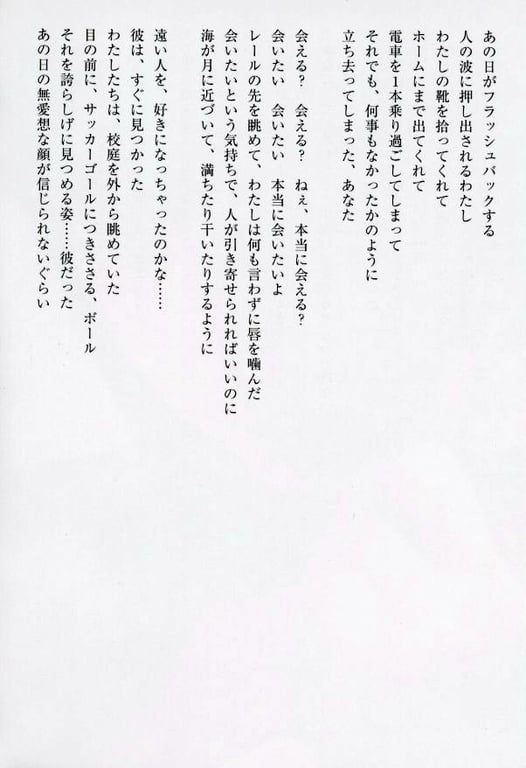 あの日がフラッシュバックする
人の波に押し出されるわたし
わたしの靴を拾ってくれて
ホームにまで出てくれて
電車を1本乗り過ごしてしまって
それでも、何事もなかったかのように
立ち去ってしまった、あなた
会える？　会える？　ねぇ、本当に会える？
会いたい　会いたい　本当に会いたいよ
レールの先を眺めて、わたしは何も言わずに唇を噛んだ
会いたいという気持ちで、人が引き寄せられればいいのに
海が月に近づいて、満ちたり干いたりするように
遠い人を、好きになっちゃったのかな……
彼は、すぐに見つかった
わたしたちは、校庭を外から眺めていた
目の前に、サッカーゴールにつきささる、ボール
それを誇らしげに見つめる姿……彼だった
あの日の無愛想な顔が信じられないぐらい